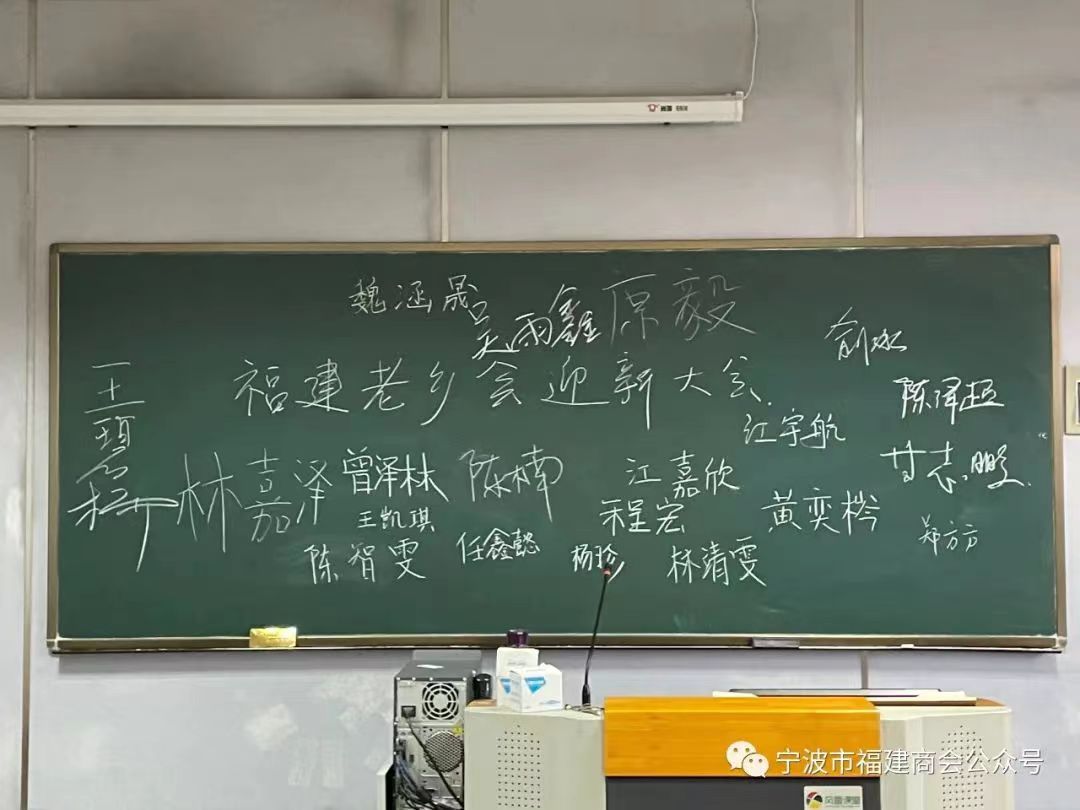 魏涵晟
吴雨鑫
原毅
俞冰
福建老乡会迎新大会
陈泽超
江宇航
林嘉泽
曾泽林
陈楠
江嘉欣
甘志鹏
王凯琪
程宏
黄奕梣
郑方方
陈智雯
任鑫懿
杨珍
林清雯
宁波市福建商会公众号